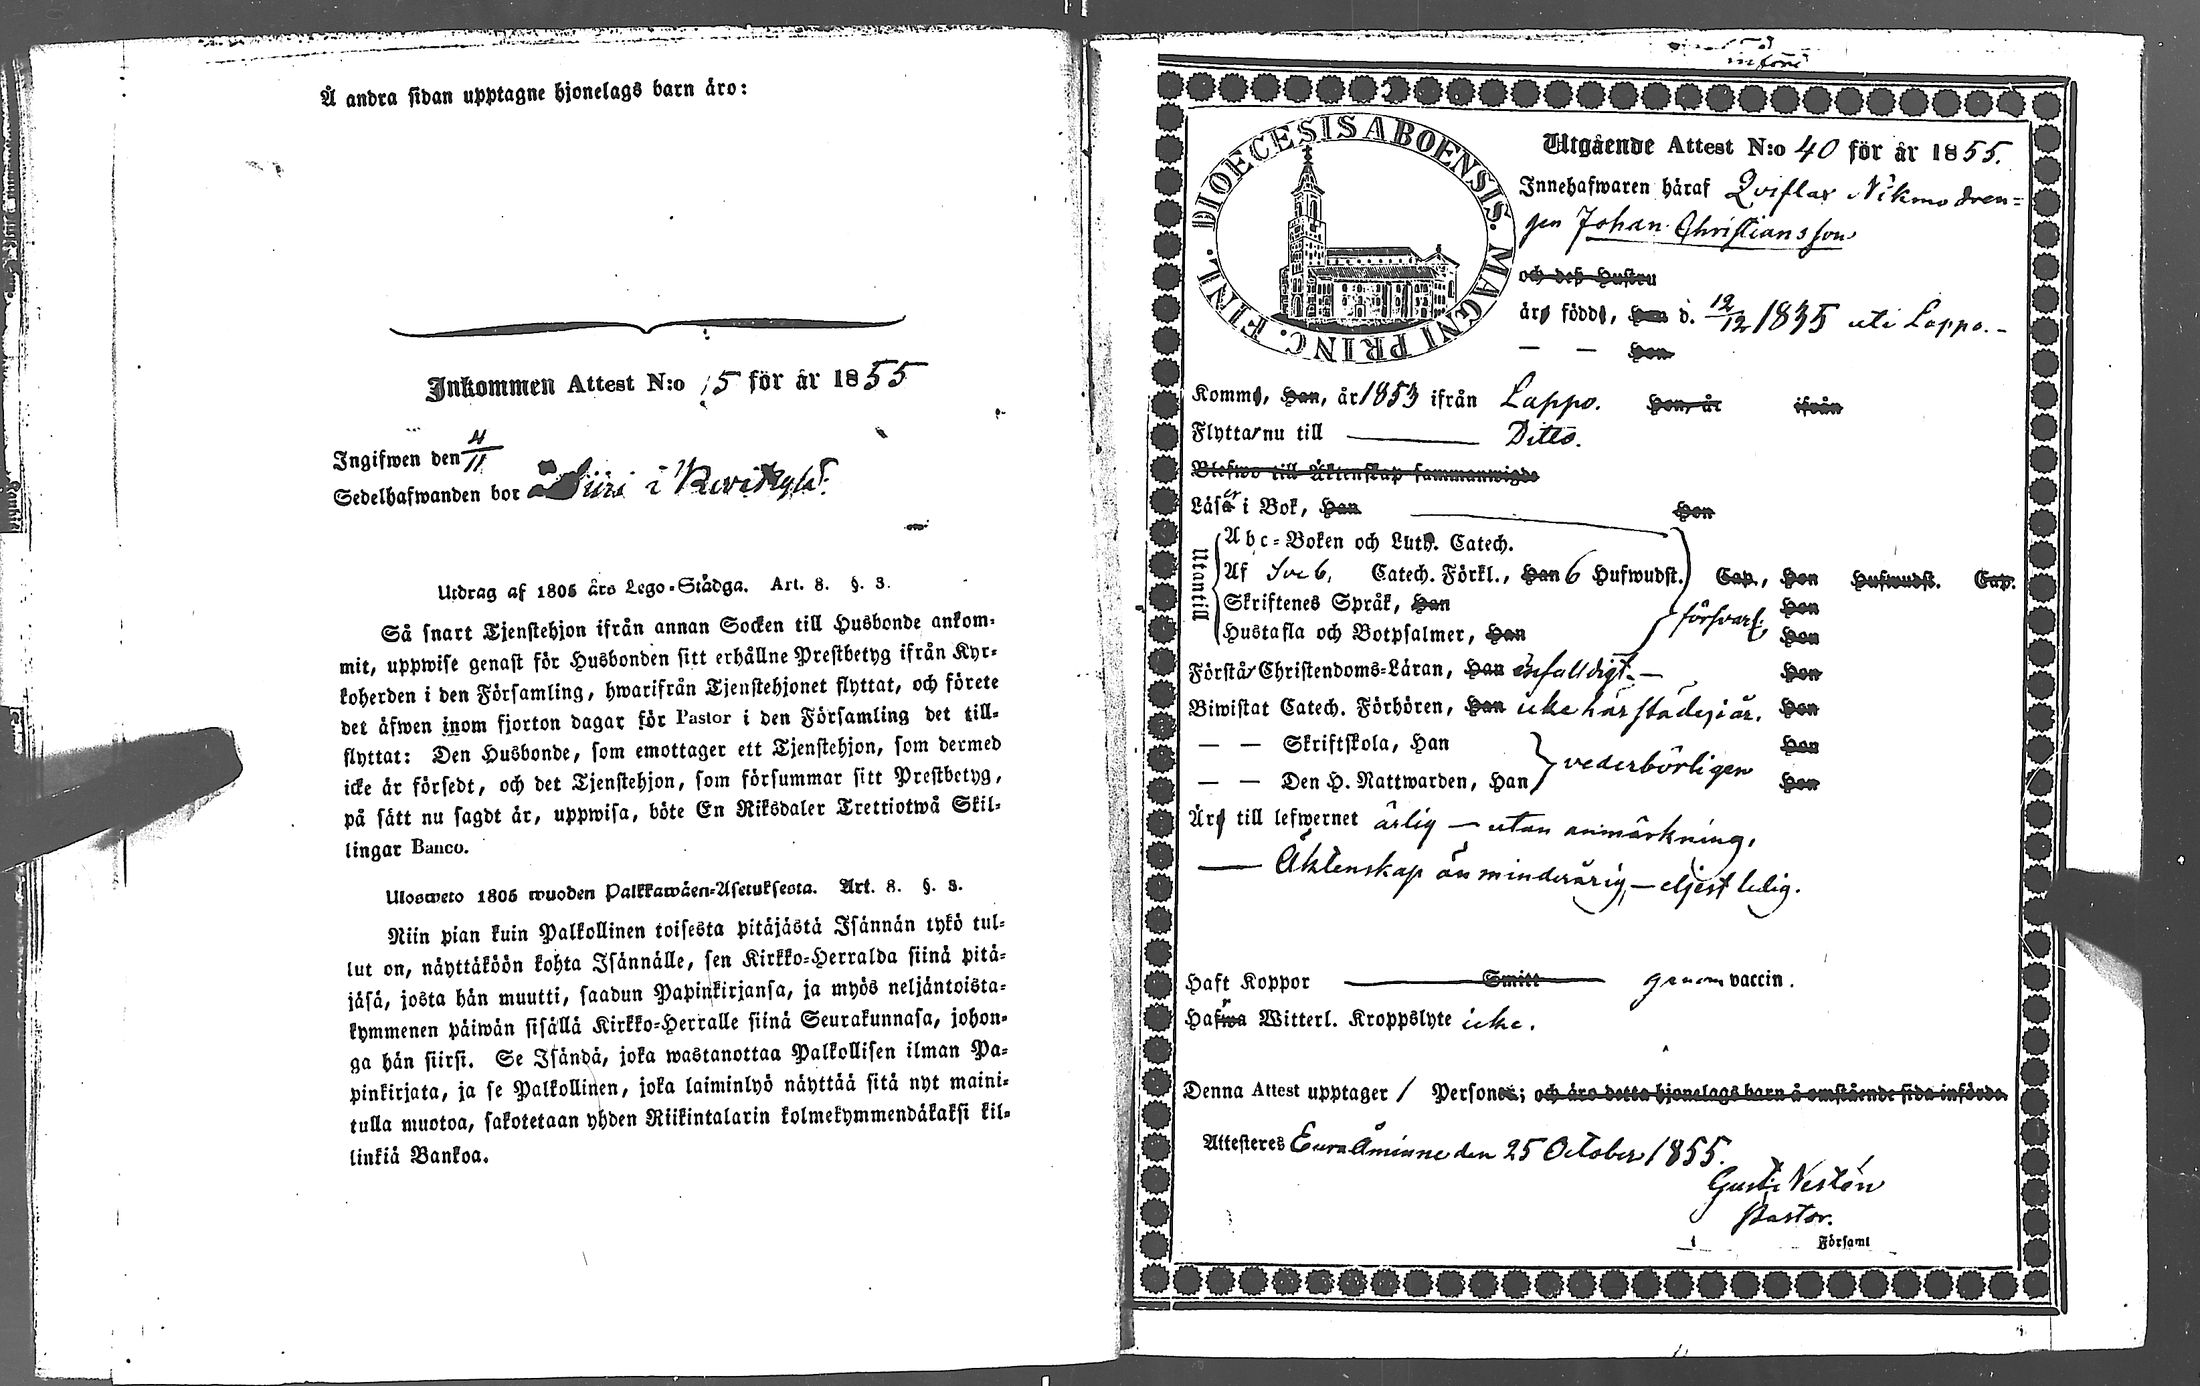 Å andra sidan upptagne hjonelags barn äro:
Inkommen Attest N:o 15 för år 1855
Ingifwen den 4/11
Sedelhafwanden bor i
Utdrag af 1805 års Lego-Stadga. Art. 8. §. 3.
Så snart Tjenstehjon ifrån annan Socken till Husbonde ankom-
mit, uppwise genast för Husbonden sitt erhållne Prestbetyg ifrån Kyr-
koherden i den Församling, hwarifrån Tjenstehjonet flyttat, och förete
det äfwen inom fjorton dagar för Pastor i den Församling det till-
flyttat: Den Husbonde, som emottager ett Tjenstehjon, som dermed
icke är försedt, och det Tjenstehjon, som försummar sitt Prestbetyg,
på sätt nu sagdt är, uppwisa, böte En Riksdaler Trettiotwå Skil-
lingar Banco.
Ulosweto 1805 wuoden Palkkawäen-Asetuksesta. Art. 8. §. 3.
Niin pian kuin Palkollinen toisesta pitäjästä Isännän tykö tul-
lut on, näyttäköön kohta Isännälle, sen Kirkko-Herralda siinä pitä-
jäsä, josta hän muutti, saadun Papinkirjansa, ja myös neljäntoista-
kymmenen päiwän sisällä Kirkko-Herralle siinä Seurakunnasa, johon-
ga hän siirsi. Se Isändä, joka wastanottaa Palkollisen ilman Pa-
pinkirjata, ja se Palkollinen, joka laiminlyö näyttää sitä nyt maini-
tulla muotoa, sakotetaan yhden Riikintalarin kolmekymmendäkaksi kil-
linkiä Bankoa.
DIOECESIS ABOENSIS. MAGNI PRINC. FINL.
Utgående Attest N:o 40 för år 1855.
Innehafwaren häraf Qviflax Nikmo dren-
gen Johan Christiansson
och deß Hustru
äro födde, han d. 12/12 1835 uti Lappo. -
— — hon
Komme, Han, år 1853 ifrån Lappo. Hon, år ifrån
Flyttar nu till ——— Ditto.
Blefwo till Äktenskap sammanwigde
Läser i Bok, Han ——— Hon
Utantill
Abc-Boken och Luth. Catech.
Af Sveb. Catech. Förkl., Han 6 Hufwudst. Cap., Hon Hufwudst. Cap.
Skriftenes Språk, Han Hon
Hustafla och Botpsalmer, Han försvarl. Hon
Förstår Christendoms-Läran, Han enfalldigt. — Hon
Biwistat Catech. Förhören, Han icke härstädes i år. Hon
— — Skriftskola, Han Hon
vederbörligen
— — Den H. Nattwarden, Han Hon
Äro till lefwernet ärlig — utan anmärkning.
— Äktenskap än minderårig, — eljest ledig.
Haft Koppor ——— Smitt ——— genom vaccin.
Hafwa Witterl. Kroppslyte icke.
Denna Attest upptager 1 Person; och äro detta hjonelags barn å omstående sida införde.
Attesteres Euraåminne den 25 October 1855.
Gust: Vestén
Pastor.
i Församl